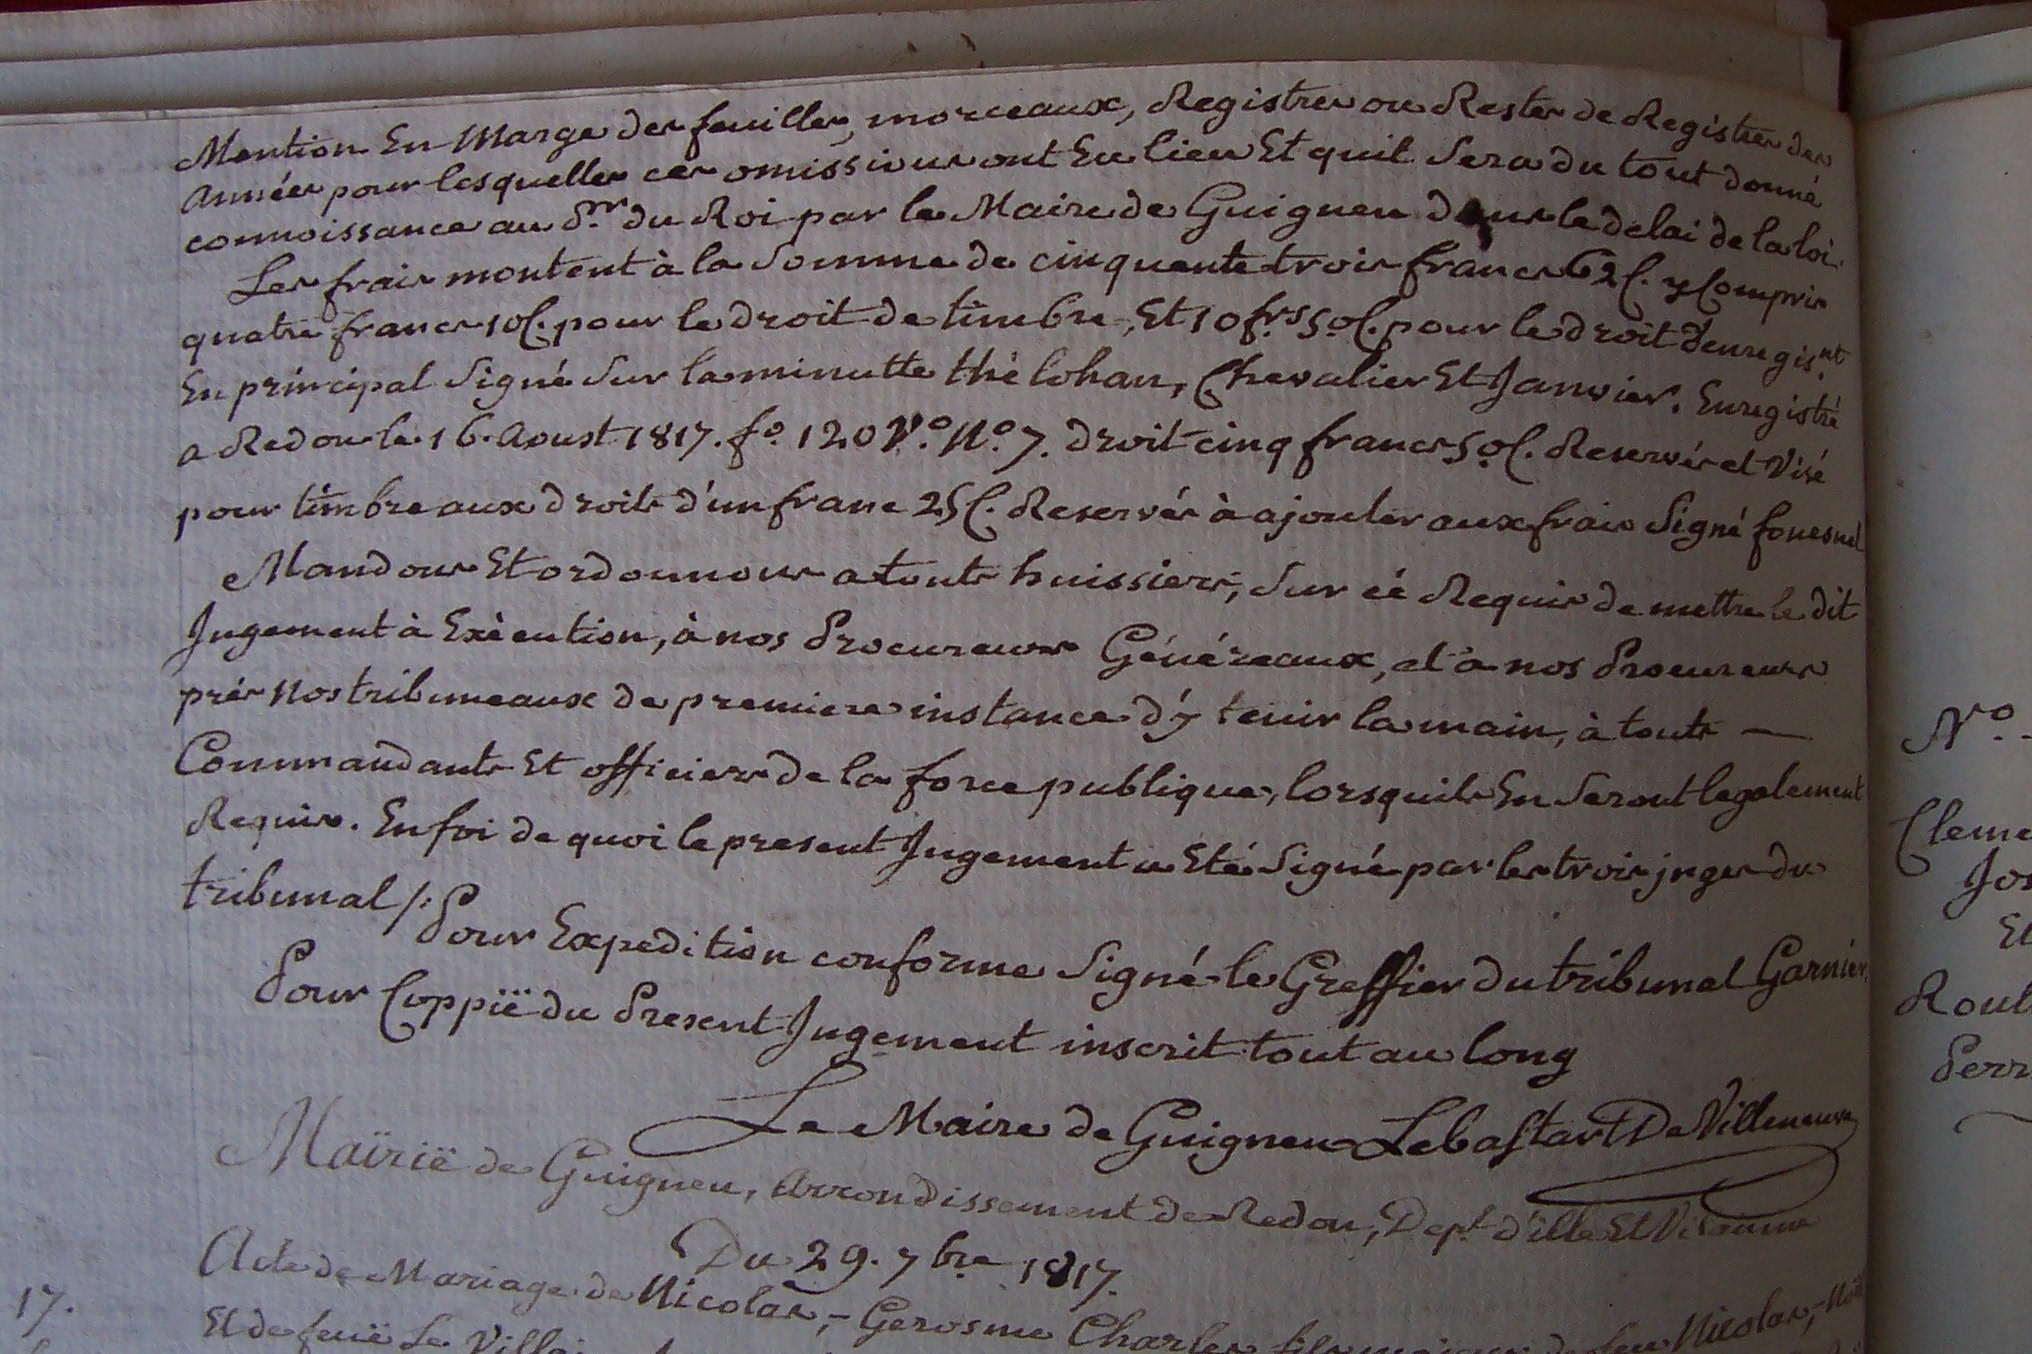 Mention En Marge des feuilles, morceaux, Registres ou Restes de Registres des
années pour lesquelles ces omissions ont Eu lieu Et quil Sera du tout donné
connoissance au Pr. du Roi par le Maire de Guignen dans le delai de la loi.
Les frais montent à la Somme de cinquante trois francs 62 C. y Compris
quatre francs 10 C. pour le droit de timbre, Et 10 frs 50 C. pour le droit d'enregis.nt
En principal Signé Sur la minutte thélohan, Chevalier Et Janvier. Enregistré
a Redon le 16. Aoust 1817. fo. 120 Vo. No. 7. droit cinq francs 50 C. Reservés et Visé
pour timbre aux droits d'un franc 25 C. Reservés à ajouter aux frais Signé fouesnel
Mandons Et ordonnons a touts huissiers, Sur cé Requis de mettre le dit
Jugement à Exècution, à nos Procureurs Généreaux, et à nos Procureurs
prés Nos tribuneaux de premiere instance d'y tenir la main, à touts —
Commandants Et officiers de la force publique, lorsquils En Seront legalement
Requis. En foi de quoi le present Jugement a Eté Signé par les trois juges du
tribunal /: Pour Expedition conforme Signé le Greffier du tribunal Garnier.
Pour Coppië du Present Jugement inscrit tout au long
Le Maire de Guignen Lebastart De Villeneuve
Maïrië de Guignen, Arrondissement de Redon, Dept. d'ille Et Vilainne
Du 29. 7bre 1817.
17. Acte de Mariage de Nicolas, Gerosme Charles fils majeur de feu Nicolas,
Et de feuë Le
No.
Cleme
Jos
Et